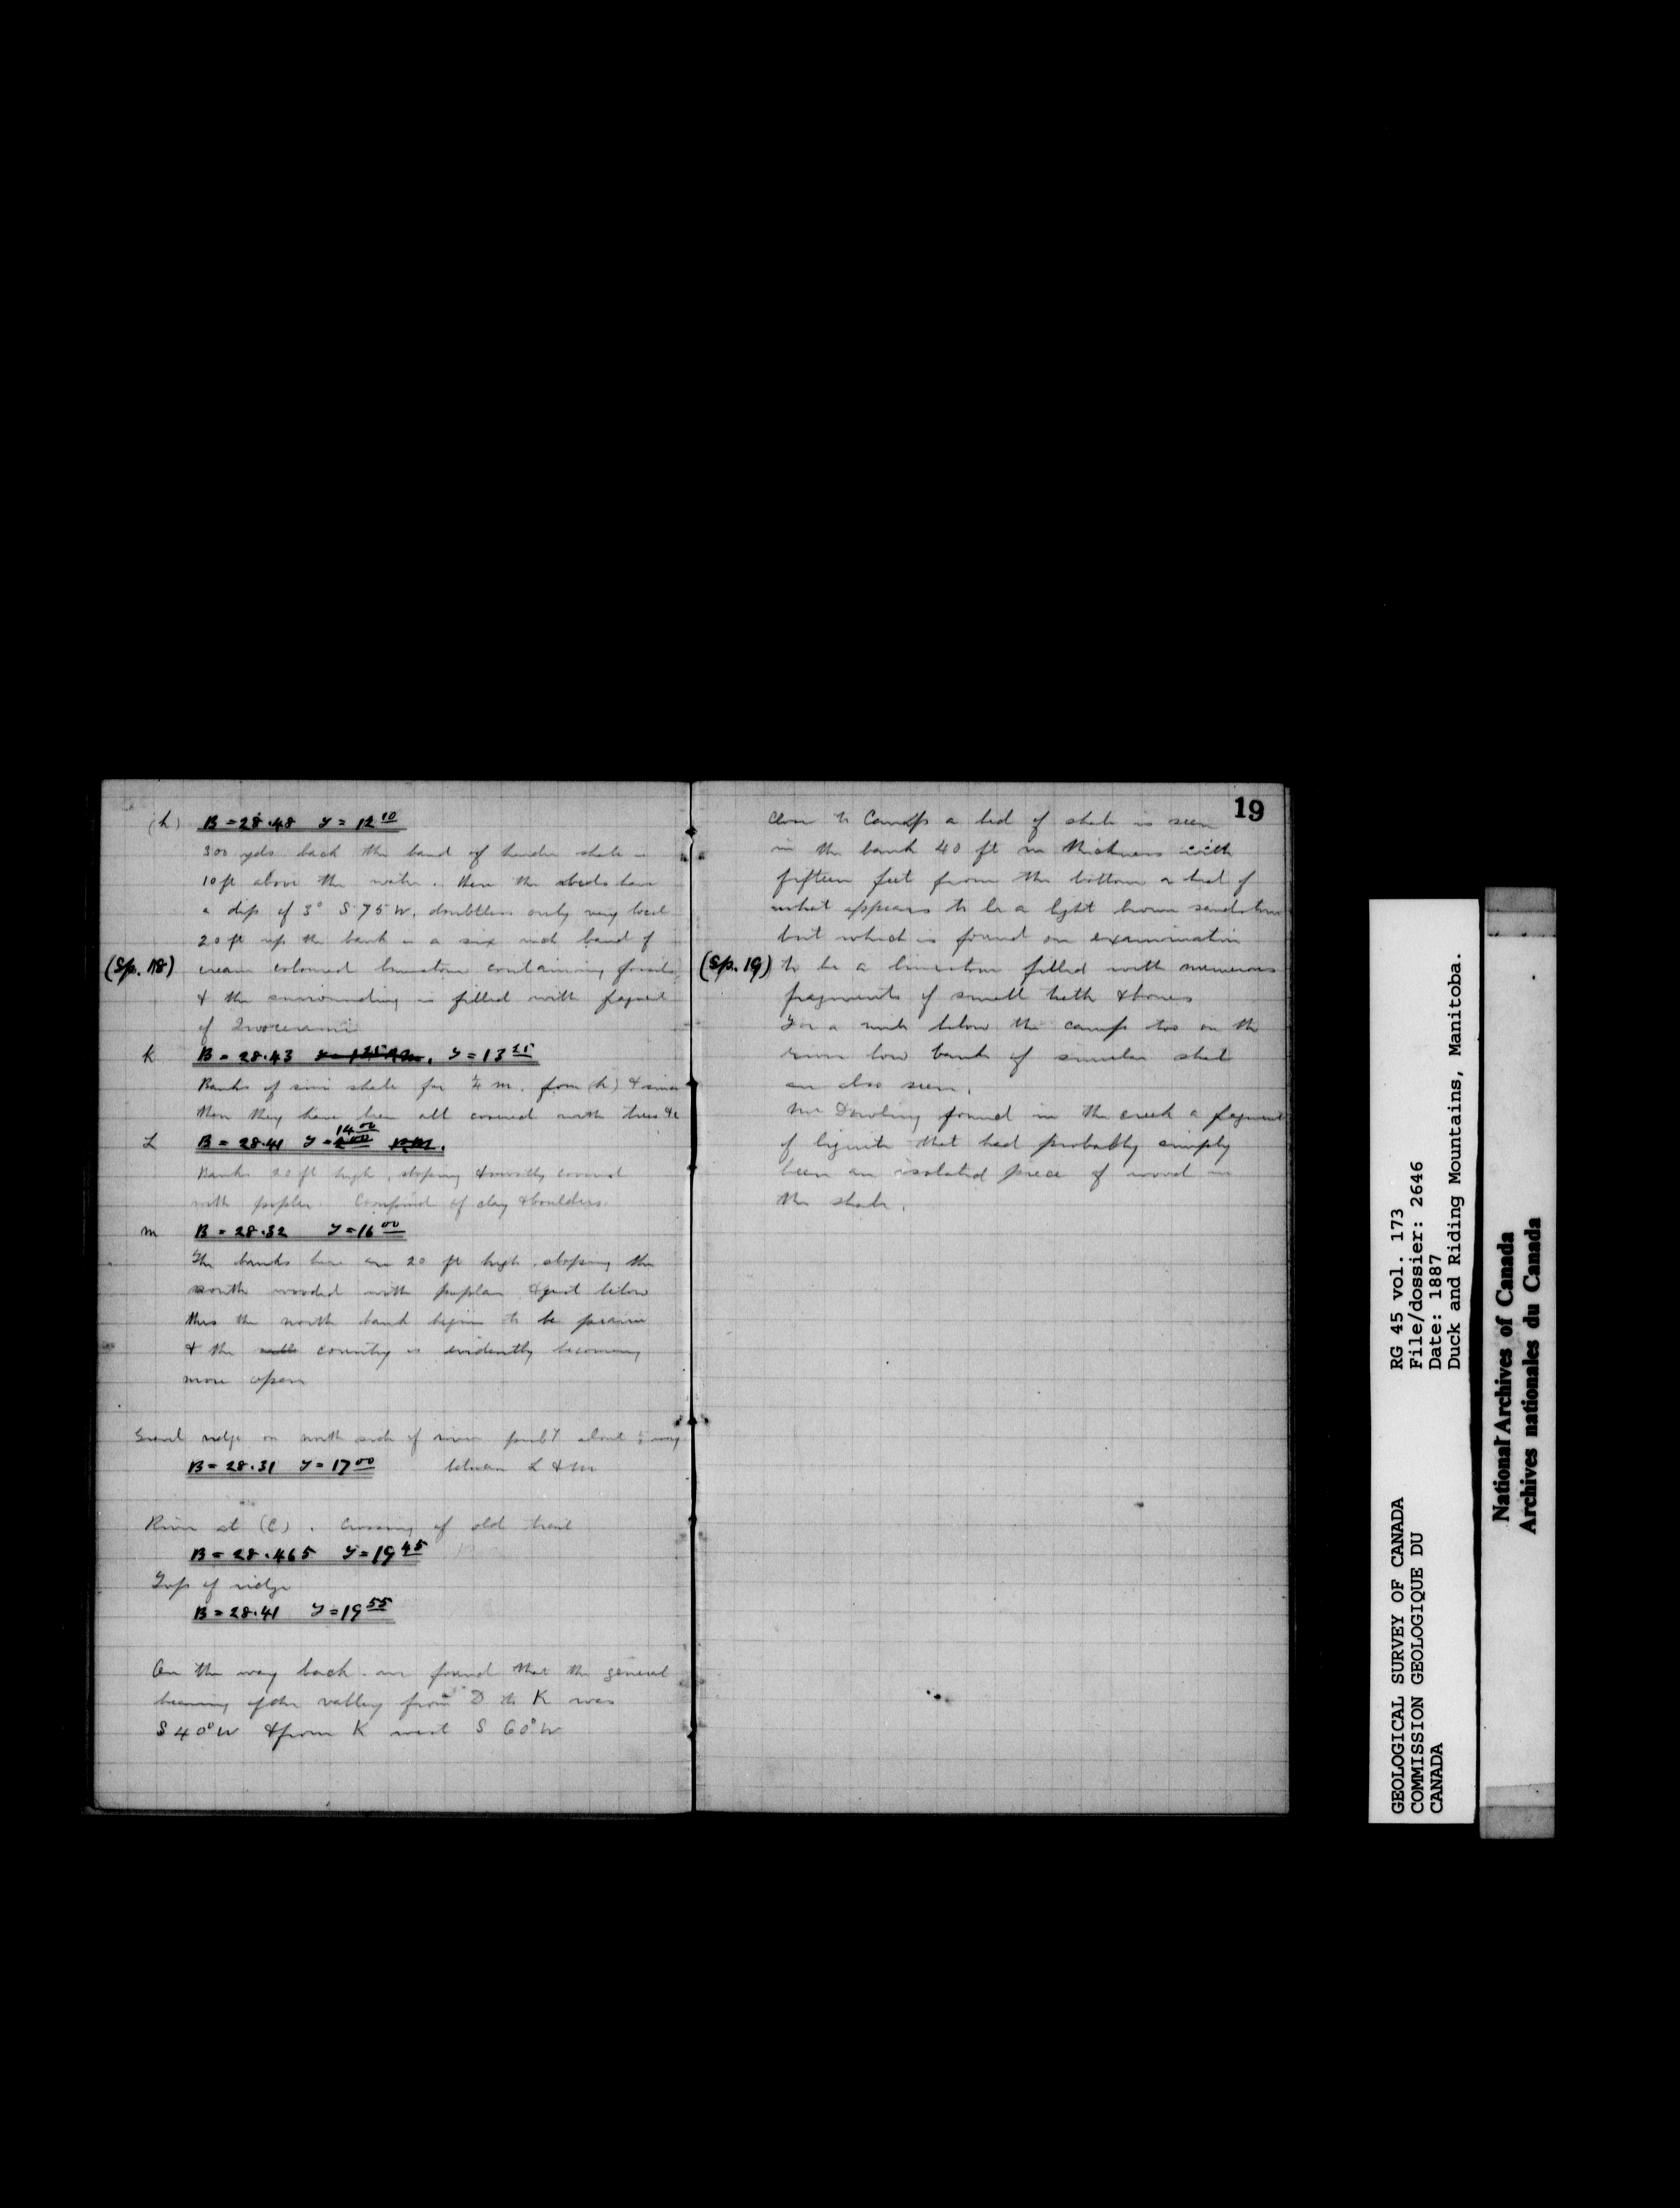 (h) B = 28.48 T = 12 10
300 yds back the band of harder shale is
10 ft above the water. Here the beds have
a dip of 3° S 75 W. doubtless only very local
20 ft up the bank is a six inch band of
(Sp. 18) cream coloured limestone containing fossils
& the surrounding is filled with fragment
of Inocerami
K B = 28.43 T = 13 25
Banks of sim shale for ¼ m. from (h) & since
then they have been all covered with trees &c
L B = 28.41 T = 14 00
Banks 20 ft high, sloping & mostly covered
with poplar. Composed of clay & boulders.
m B = 28.32 T = 16 00
The banks here are 20 ft high sloping the
south wooded with poplar & just below
this the north bank begins to be prairie
& the country is evidently becoming
more open
Gravel ridge on north side of river about way
B = 28.31 T = 17 00 between L & M
River at (C). Crossing of old trail
B = 28.465 T = 19 45
Top of ridge
B = 28.41 T = 19 55
On the way back we found that the general
bearing of the valley from D to K was
S 40° W & from K west S 60° W
19
Close to Camp a bed of shale is seen
in the bank 40 ft in thickness with
fifteen feet from the bottom a bed of
what appears to be a light brown sandstone
but which is found on examination
(Sp. 19) to be a limestone filled with numerous
fragments of small teeth & bones
For a mile below the camp too on the
river low banks of similar shale
are also seen.
Mr Dowling found in the creek a fragment
of lignite that had probably simply
been an isolated piece of wood in
the shale.
GEOLOGICAL SURVEY OF CANADA
COMMISSION GEOLOGIQUE DU
CANADA
RG 45 vol. 173
File/dossier: 2646
Date: 1887
Duck and Riding Mountains, Manitoba.
National Archives of Canada
Archives nationales du Canada